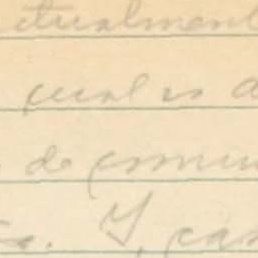 ctualment
cual es a
de comun
Y, cas